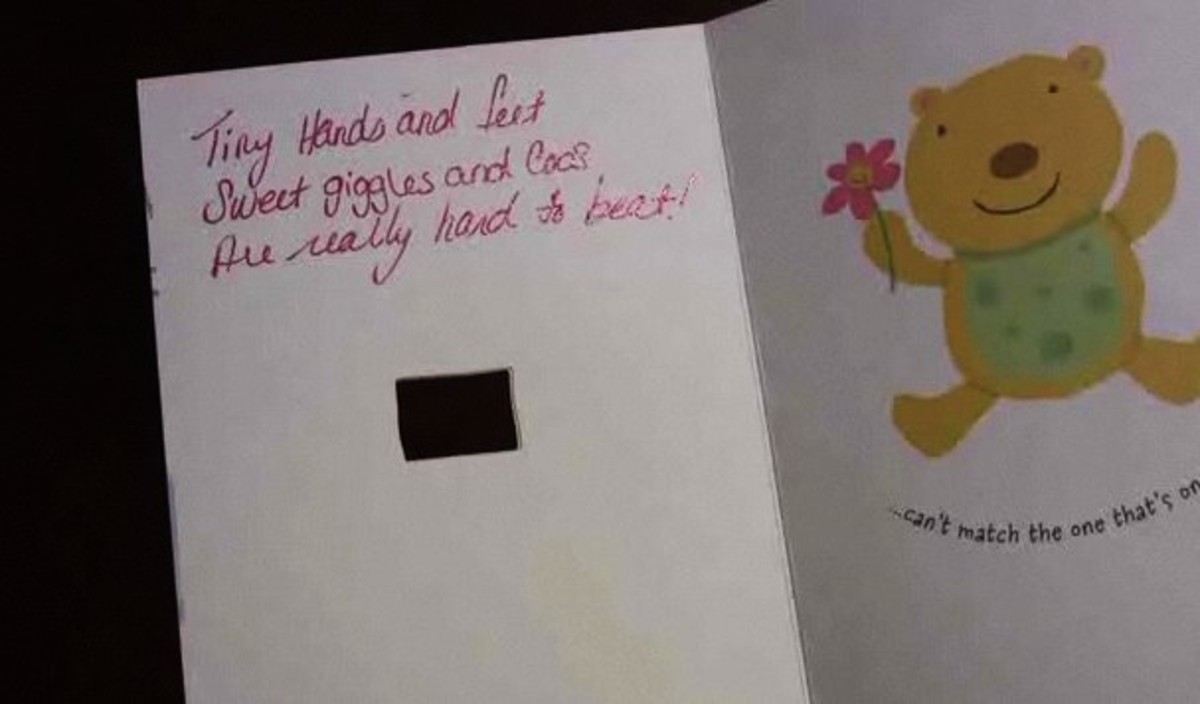 Tiny Hands and feet
Sweet giggles and Coos
Are really hard to beat!
...can't match the one that's on